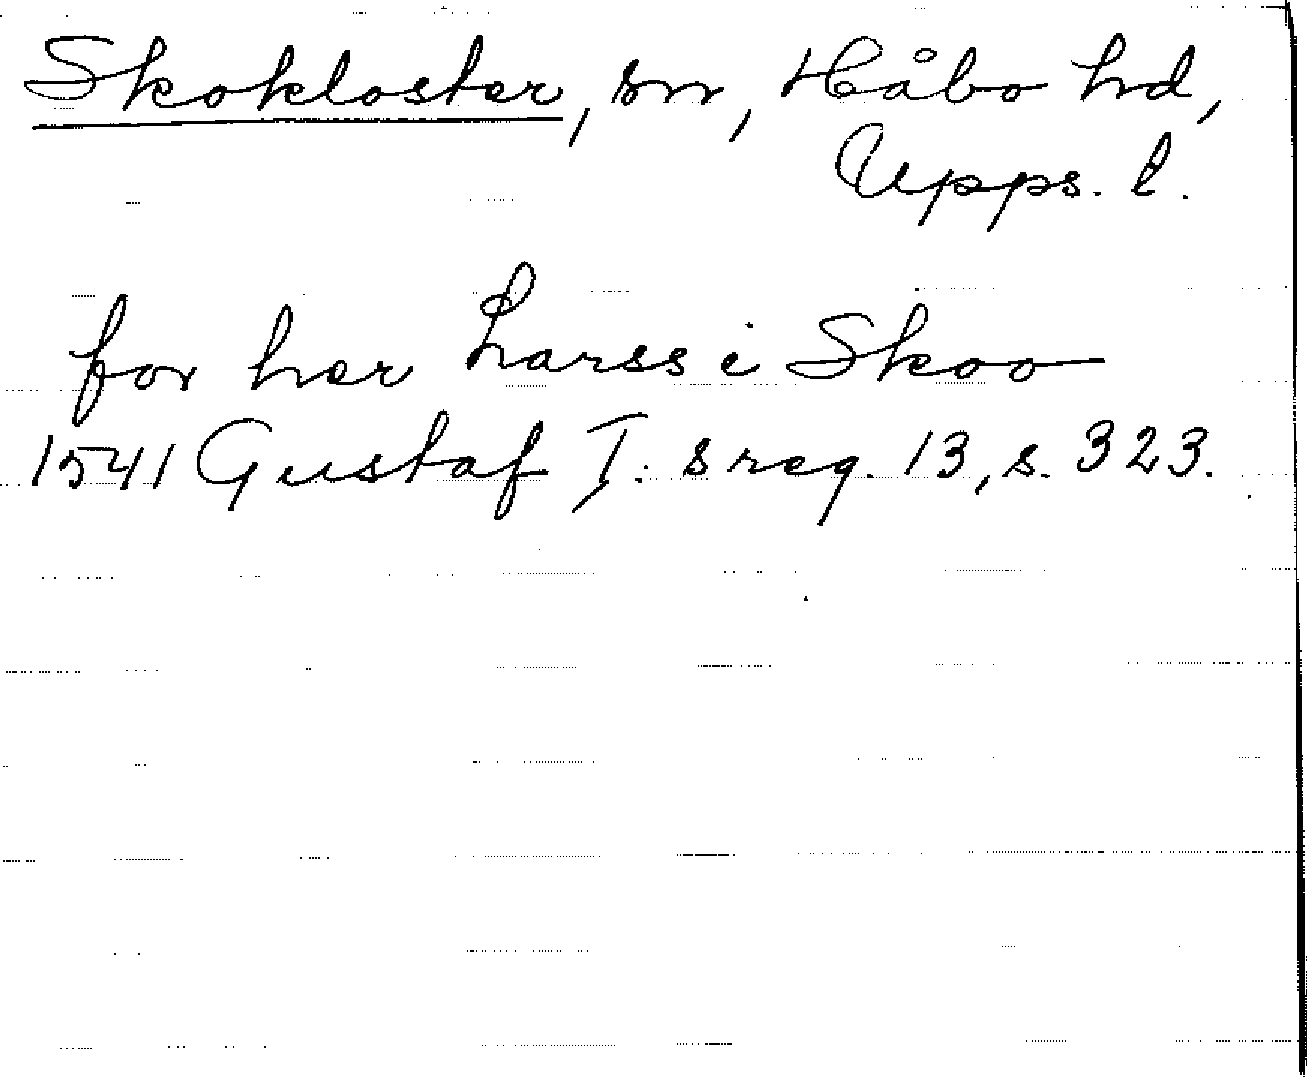 Skokloster, sn, Håbo hd,
Upps. l.
for her Larss i Skoo
1541 Gustaf I. s reg. 13, s. 323.